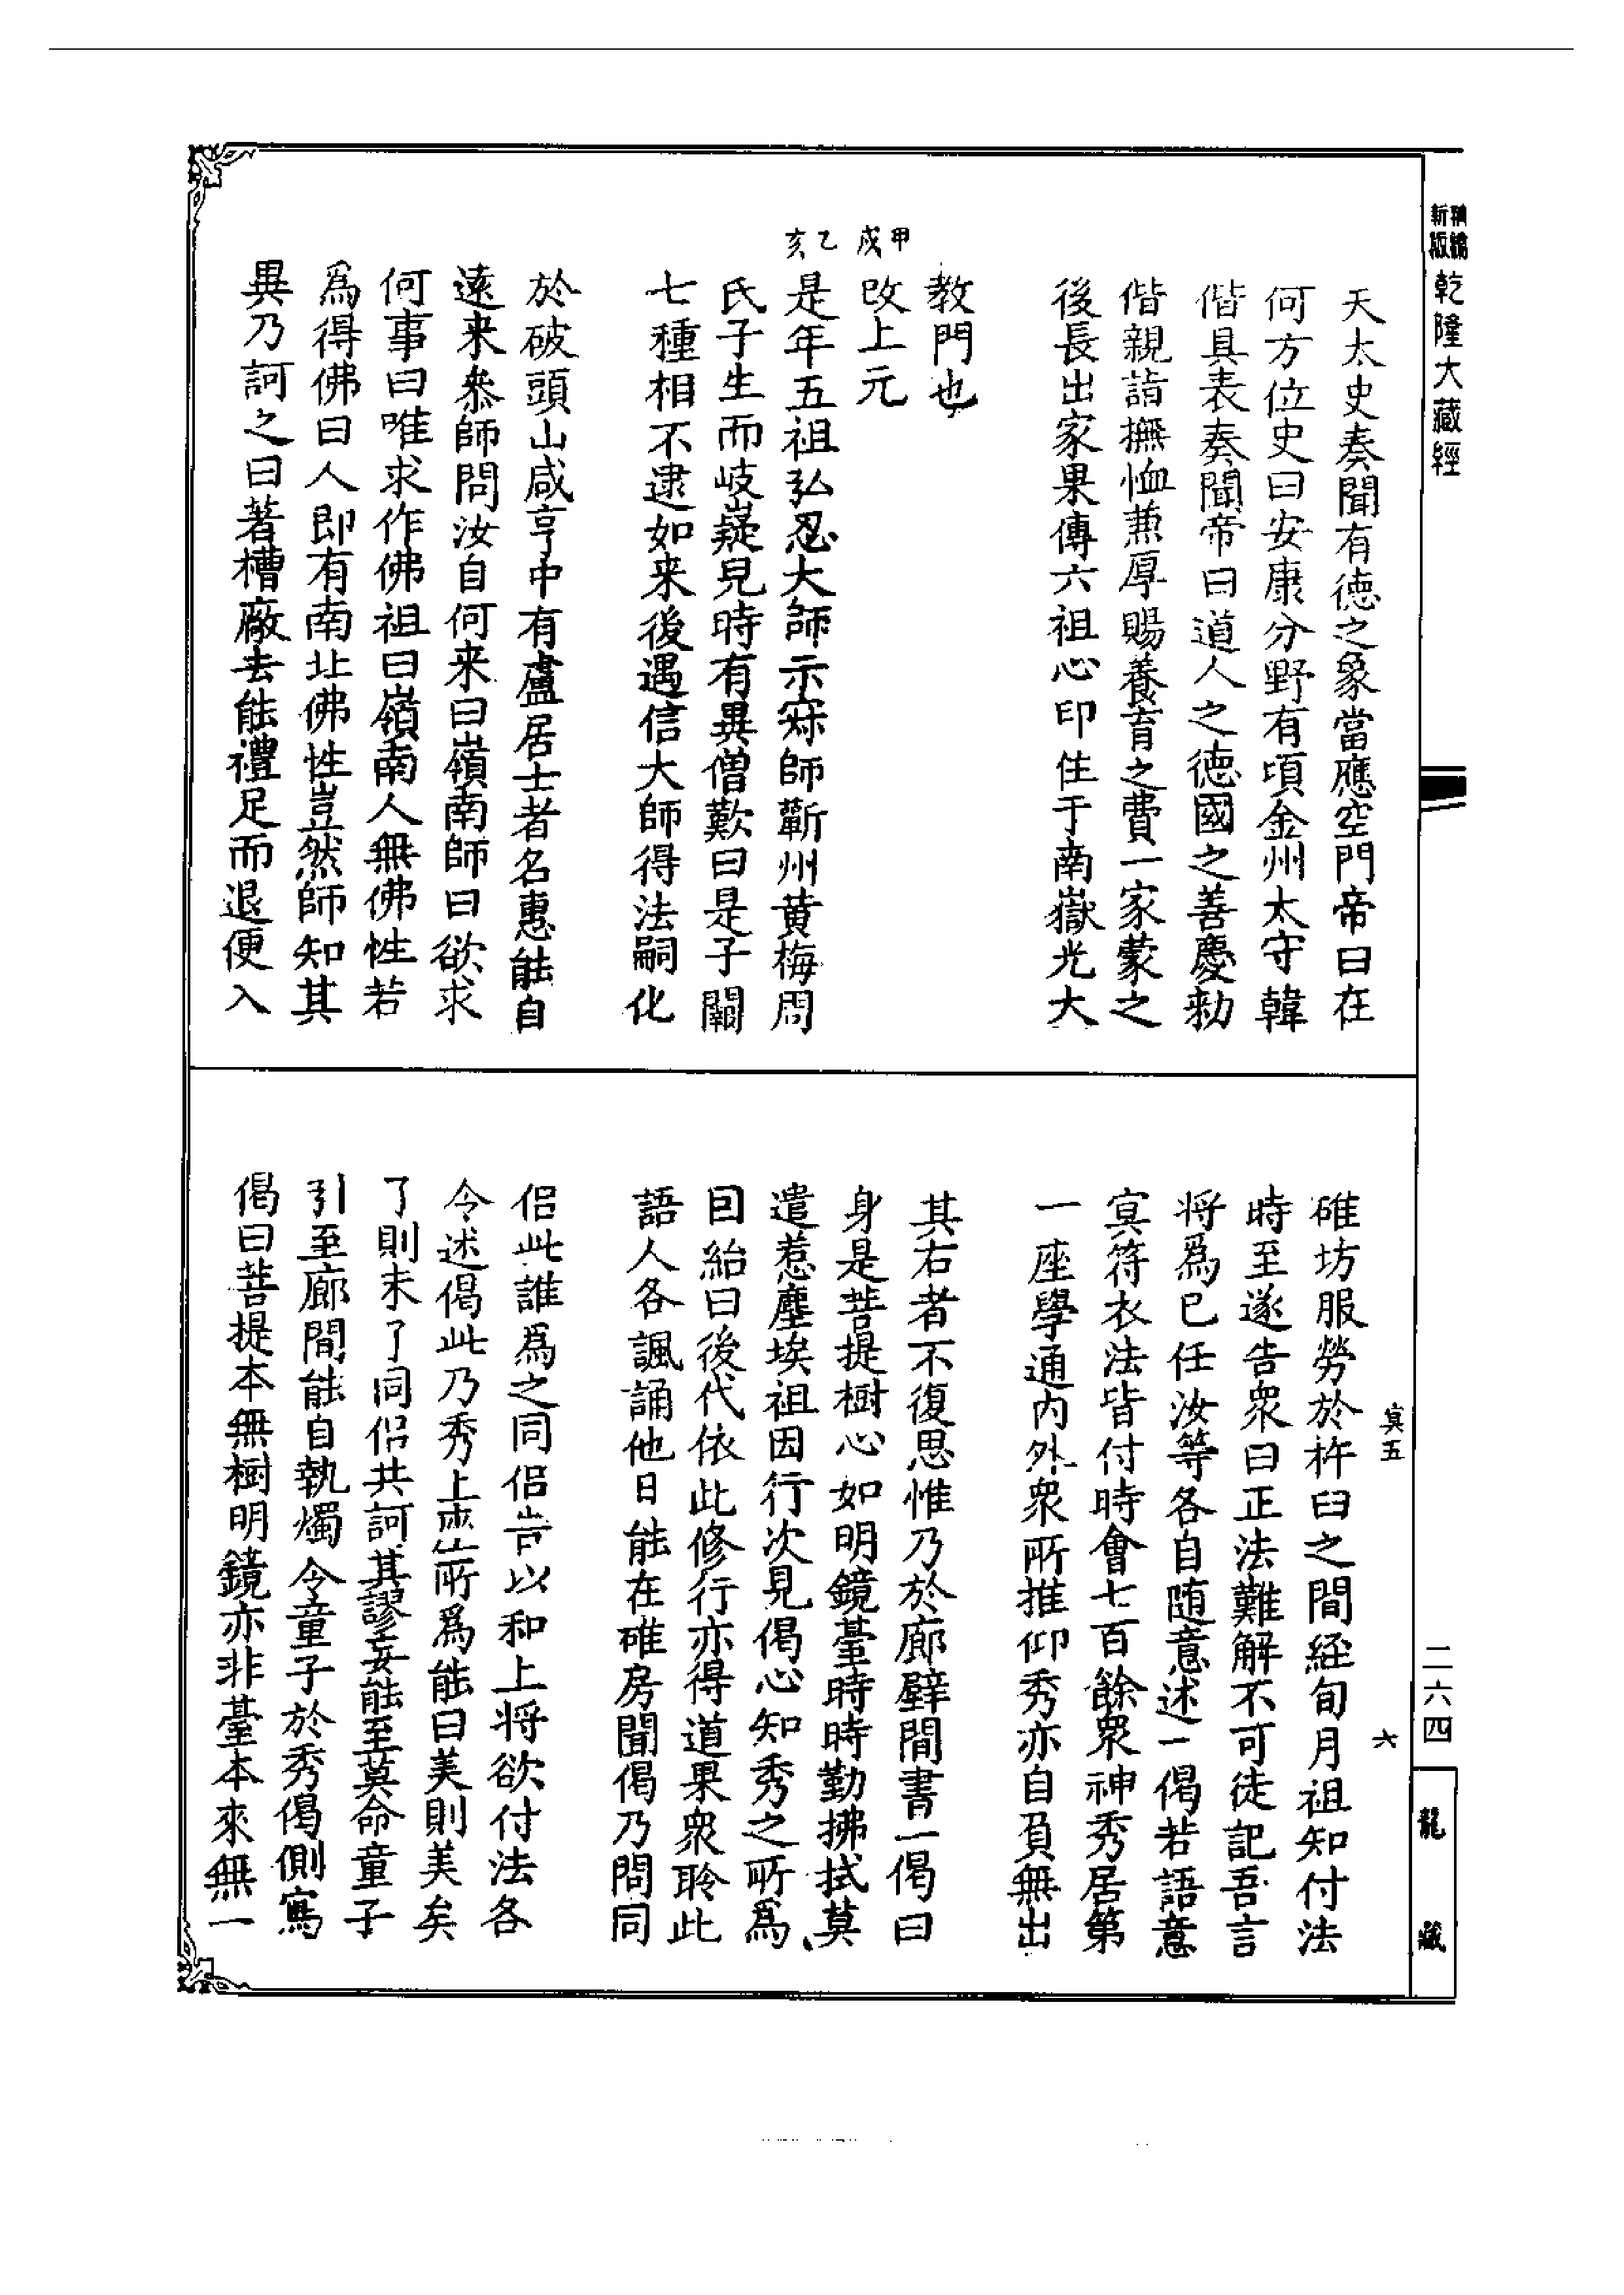 精編
新版
乾隆大藏經
天太史奏聞有徳之象當應空門帝曰在
何方位史曰安康分野有頃金州太守韓
偕具表奏聞帝曰道人之徳國之善慶勅
偕親詣撫恤蕪厚賜養育之費一家蒙之
後長出家果傳六祖心印住于南嶽光大
教門也
甲戌
改上元
乙亥
是年五祖弘忍大師示寂師蘄州黄梅周
氏子生而岐嶷兒時有異僧歎曰是子闕
七種相不逮如来後遇信大師得法嗣化
於破頭山咸亨中有盧居士者名惠能自
遠来叅師問汝自何来曰嶺南師曰欲求
何事曰唯求作佛祖曰嶺南人無佛性若
爲得佛曰人即有南北佛性豈然師知其
異乃訶之曰著槽廠去能禮足而退便入
冥五
六
碓坊服勞於杵臼之間経旬月祖知付法
時至遂告衆曰正法難解不可徒記吾言
将爲已任汝等各自随意述一偈若語意
冥符衣法皆付時會七百餘衆神秀居第
一座學通内外衆所推仰秀亦自負無出
其右者不復思惟乃於廊壁間書一偈曰
身是菩提樹心如明鏡臺時時勤拂拭莫
遣惹塵埃祖因行次見偈心知秀之所爲
因紿曰後代依此修行亦得道果衆聆此
語人各諷誦他日能在碓房聞偈乃問同
侣此誰爲之同侣告以和上将欲付法各
令述偈此乃秀上座所爲能曰美則美矣
了則未了同侣共訶其謬妄能至莫命童子
引至廊間能自執燭令童子於秀偈側寫
偈曰菩提本無樹明鏡亦非臺本來無一
二六四
龍藏